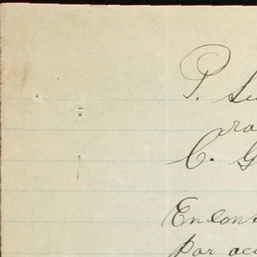 P. Su
ra
C. G
Encon
Por ac